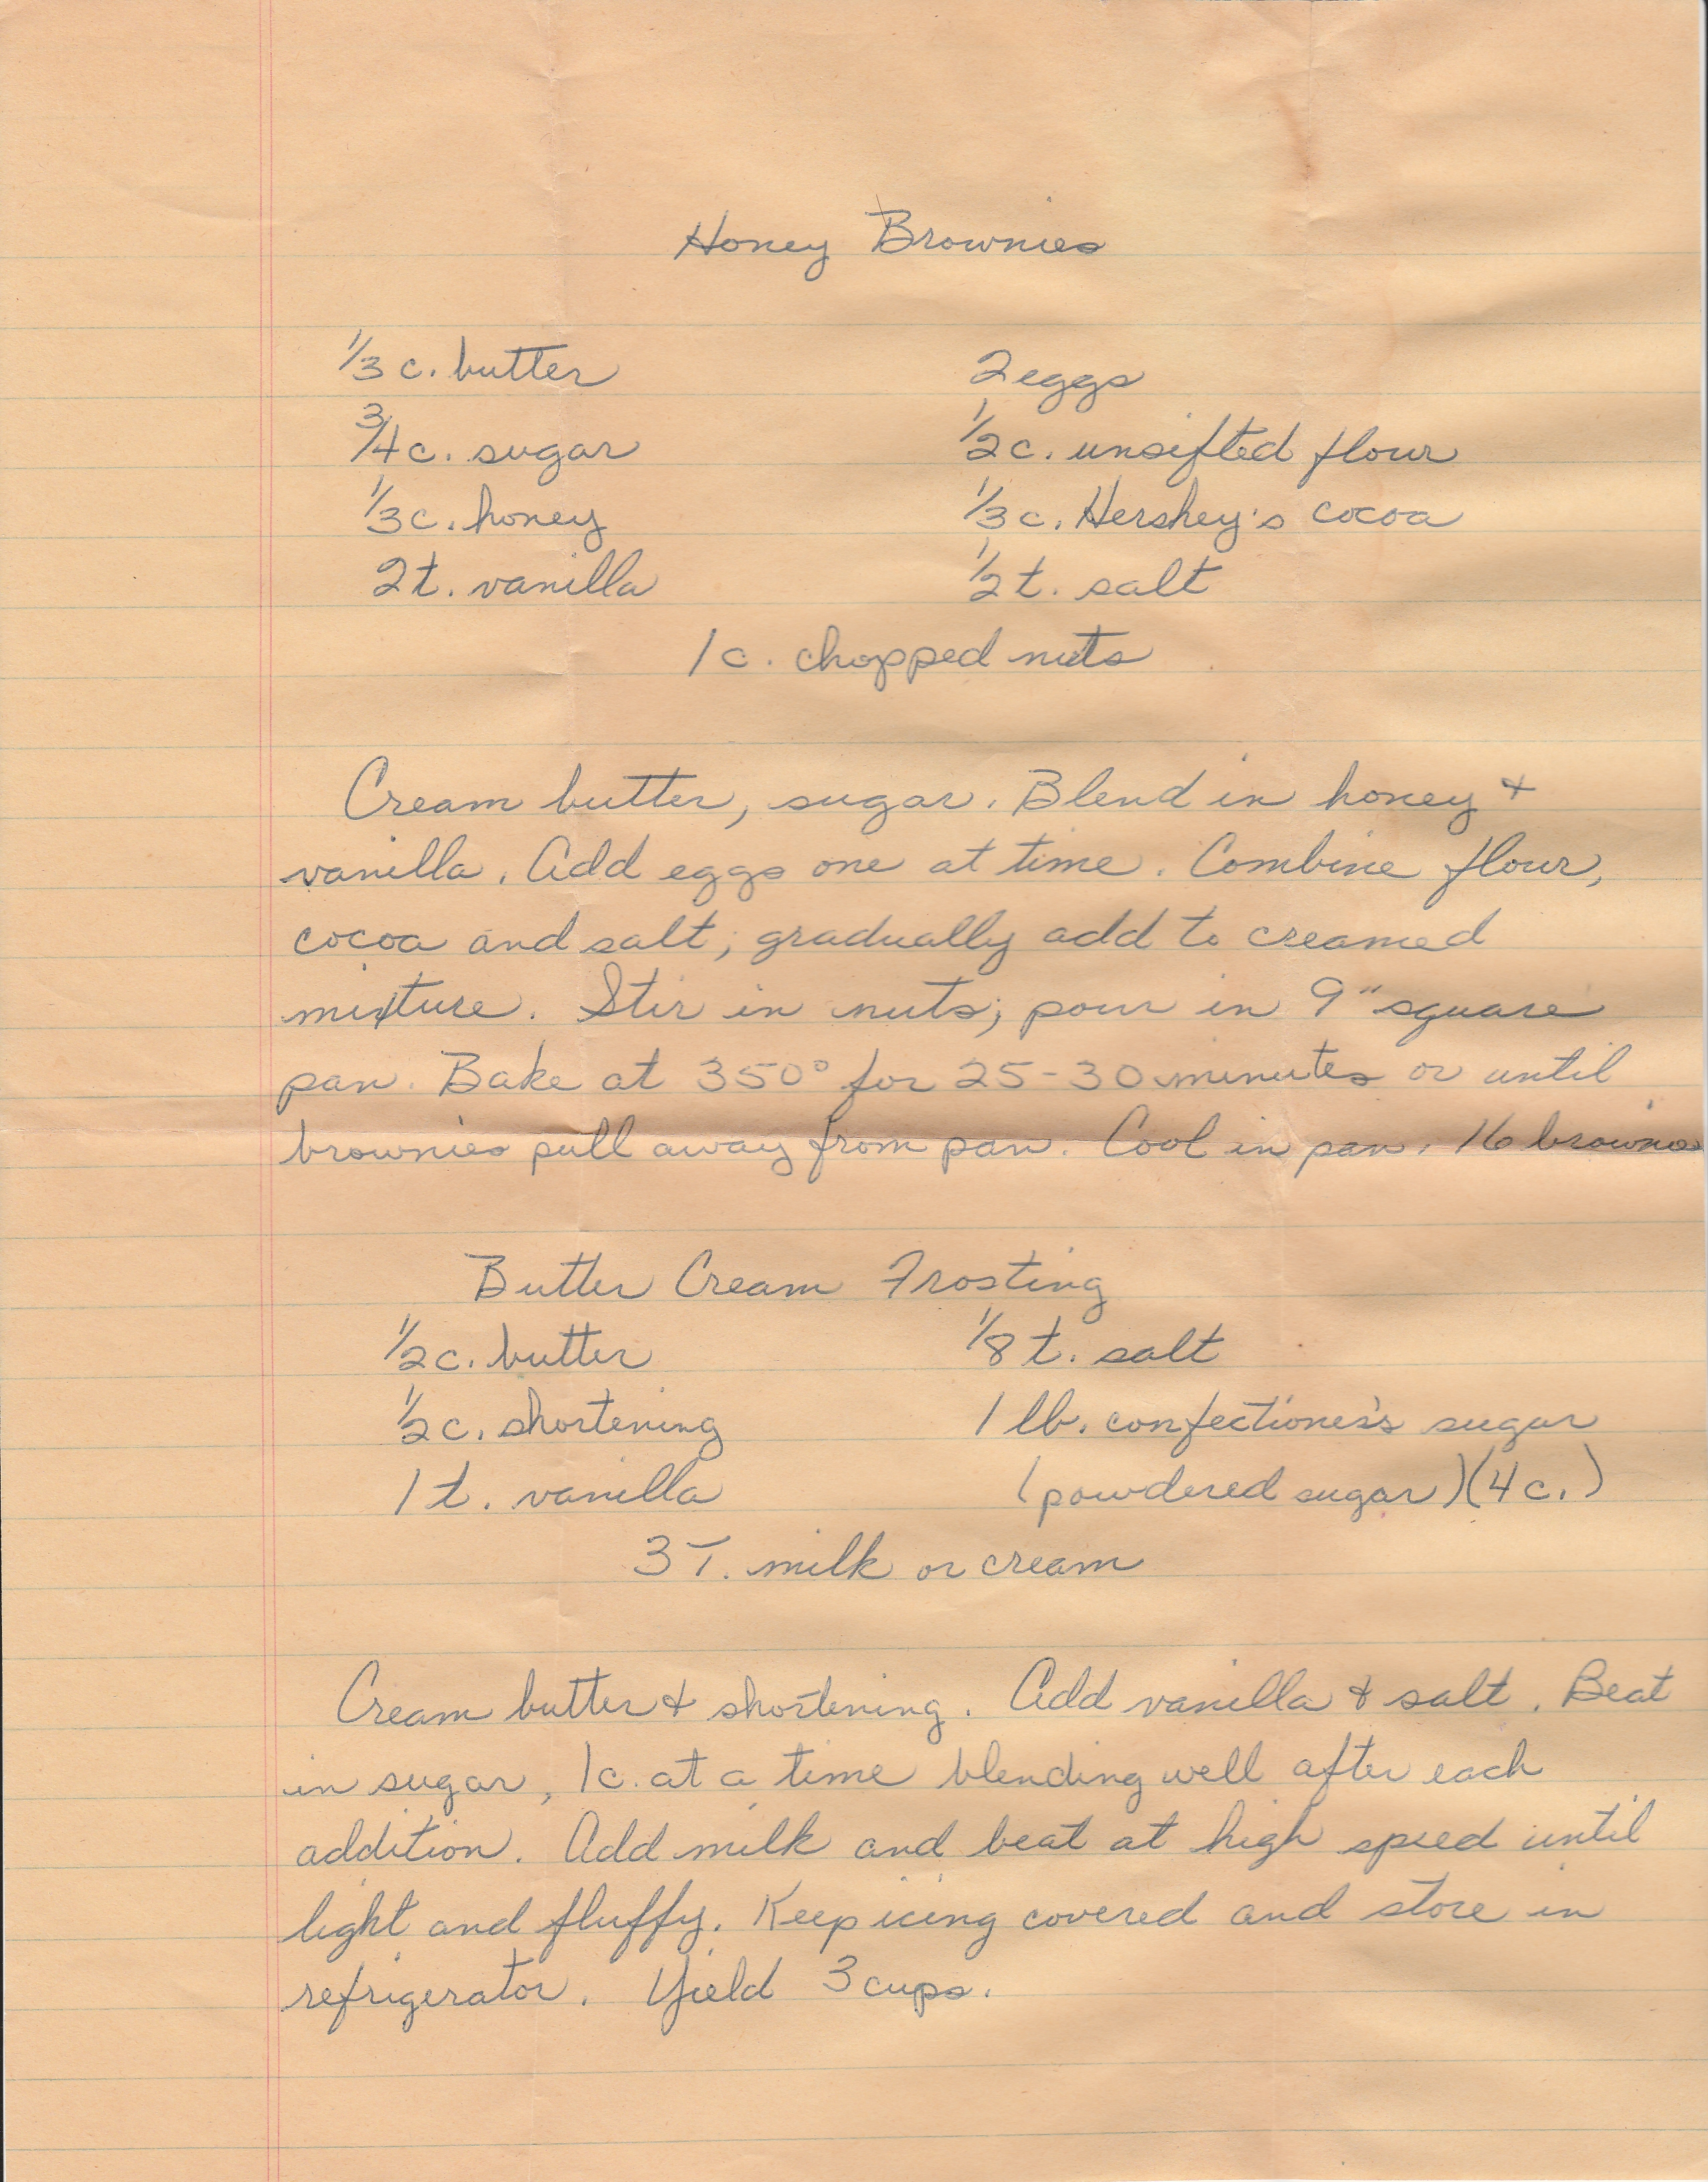 Honey Brownies
1/3 c. butter 2 eggs
3/4 c. sugar 1/2 c. unsifted flour
1/3 c. honey 1/3 c. Hershey's cocoa
2 t. vanilla 1/2 t. salt
1 c. chopped nuts
Cream butter, sugar. Blend in honey &
vanilla. Add eggs one at time. Combine flour,
cocoa and salt; gradually add to creamed
mixture. Stir in nuts; pour in 9" square
pan. Bake at 350° for 25-30 minutes or until
brownies pull away from pan. Cool in pan. 16 brownies
Butter Cream Frosting
1/2 c. butter 1/8 t. salt
1/2 c. shortening 1 lb. confectioner's sugar
1 t. vanilla (powdered sugar) (4 c.)
3 T. milk or cream
Cream butter & shortening. Add vanilla & salt. Beat
in sugar, 1 c. at a time blending well after each
addition. Add milk and beat at high speed until
light and fluffy. Keep icing covered and store in
refrigerator. Yield 3 cups.